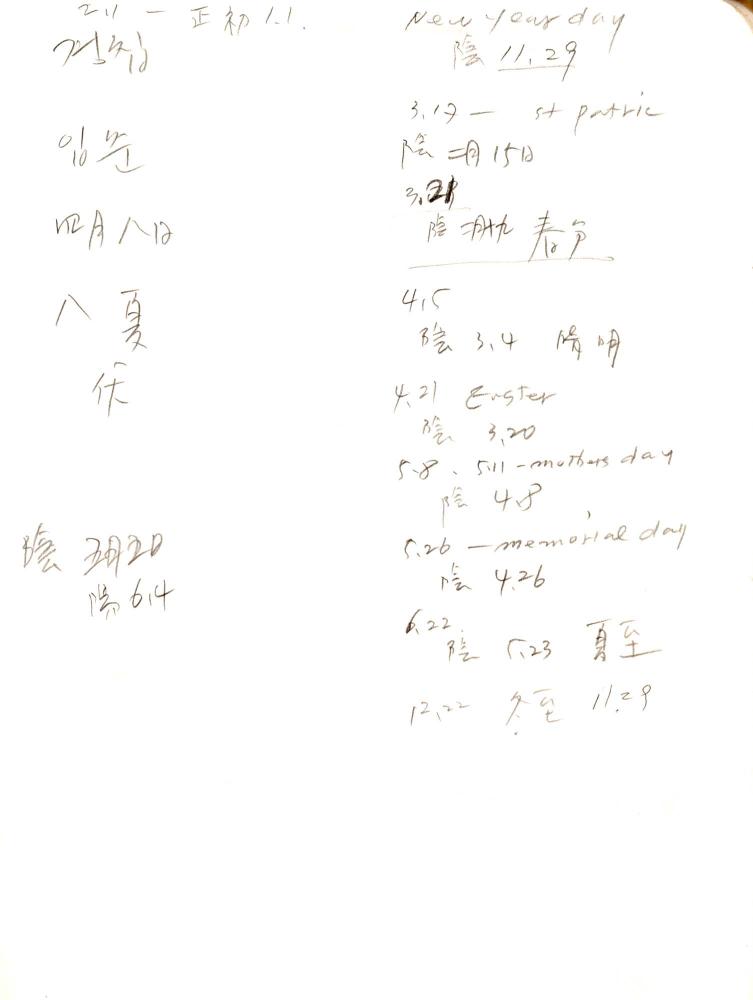 2.1 — 正初 1.1.
경칩
입춘
四月八日
八 夏
伏
陰 五月 20
陽 6.4
New Year day
陰 11.29
3.17 — st patric
陰 二月 15日
3.21
陰 二月十九 春分
4.5
陰 3.4 清明
4.21 Easter
陰 3.20
5.8 . 5.11 - mothers day
陰 4.8
5.26 — memorial day
陰 4.26
6.22.
陰 5.23 夏至
12.22 冬至 11.29